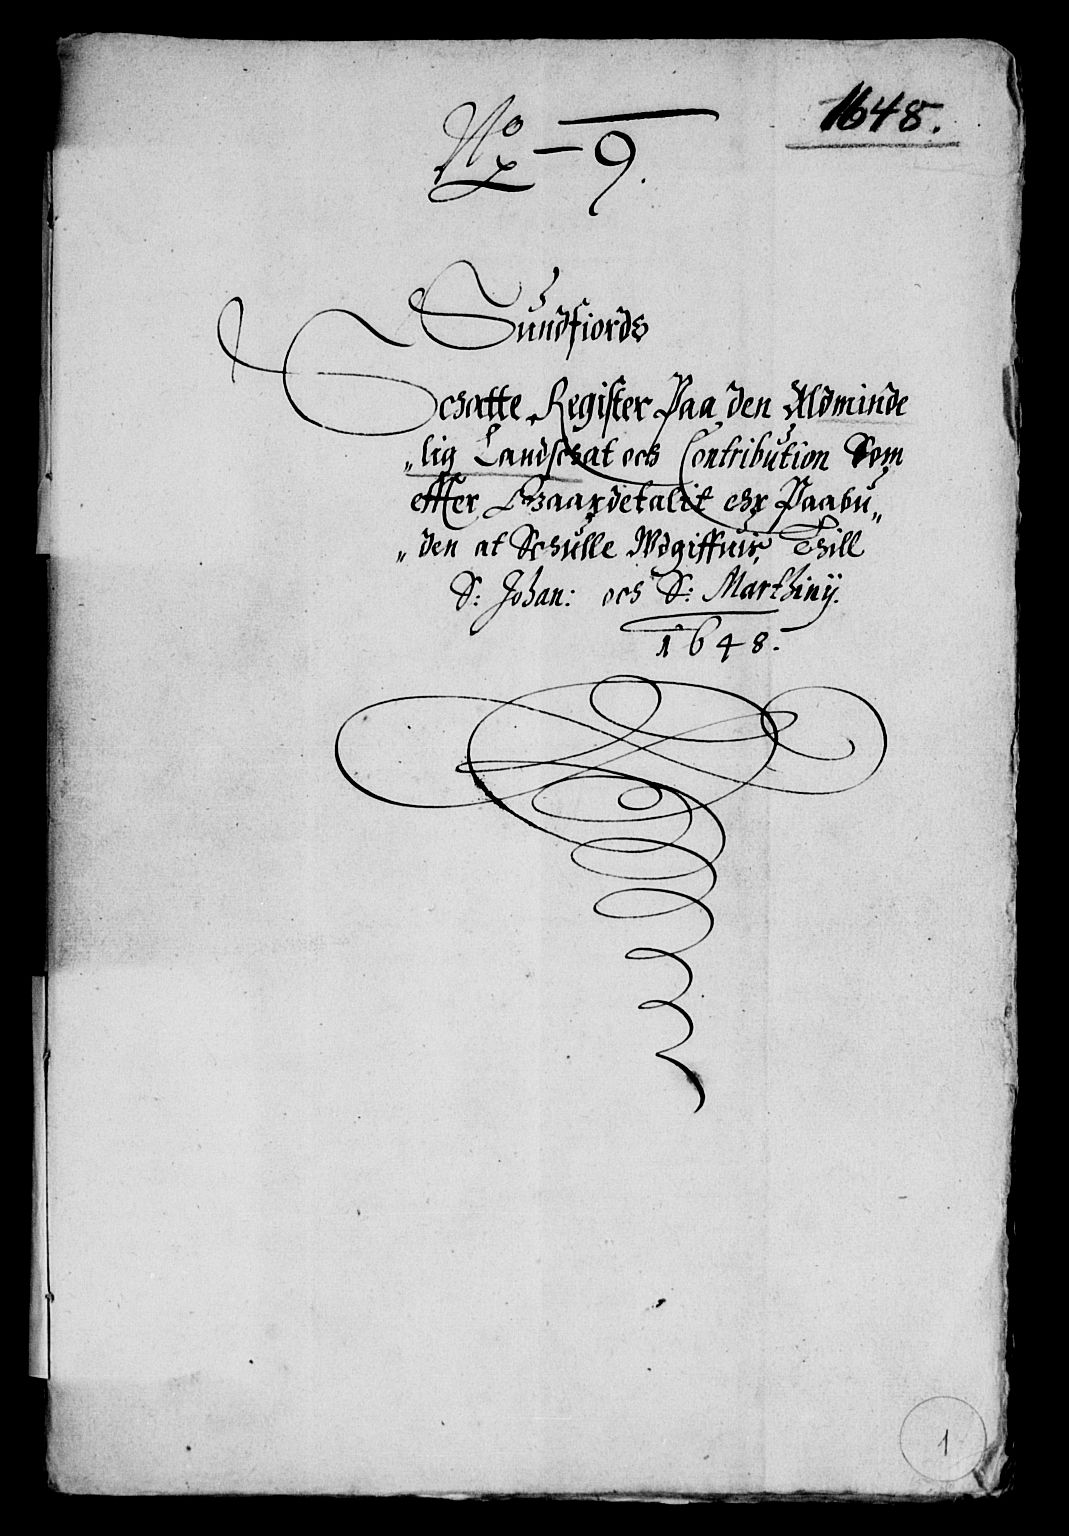 1648.
No - 9.
Sundfiords
Schatte Register Paa den Aldminde
"lig Landschat och Contribution Som
effter Gaardetalit ehr Paabu"
"den at Schulle Wdgiffuis Thill
S: Johan: och S: Marthinij.
1648.
1